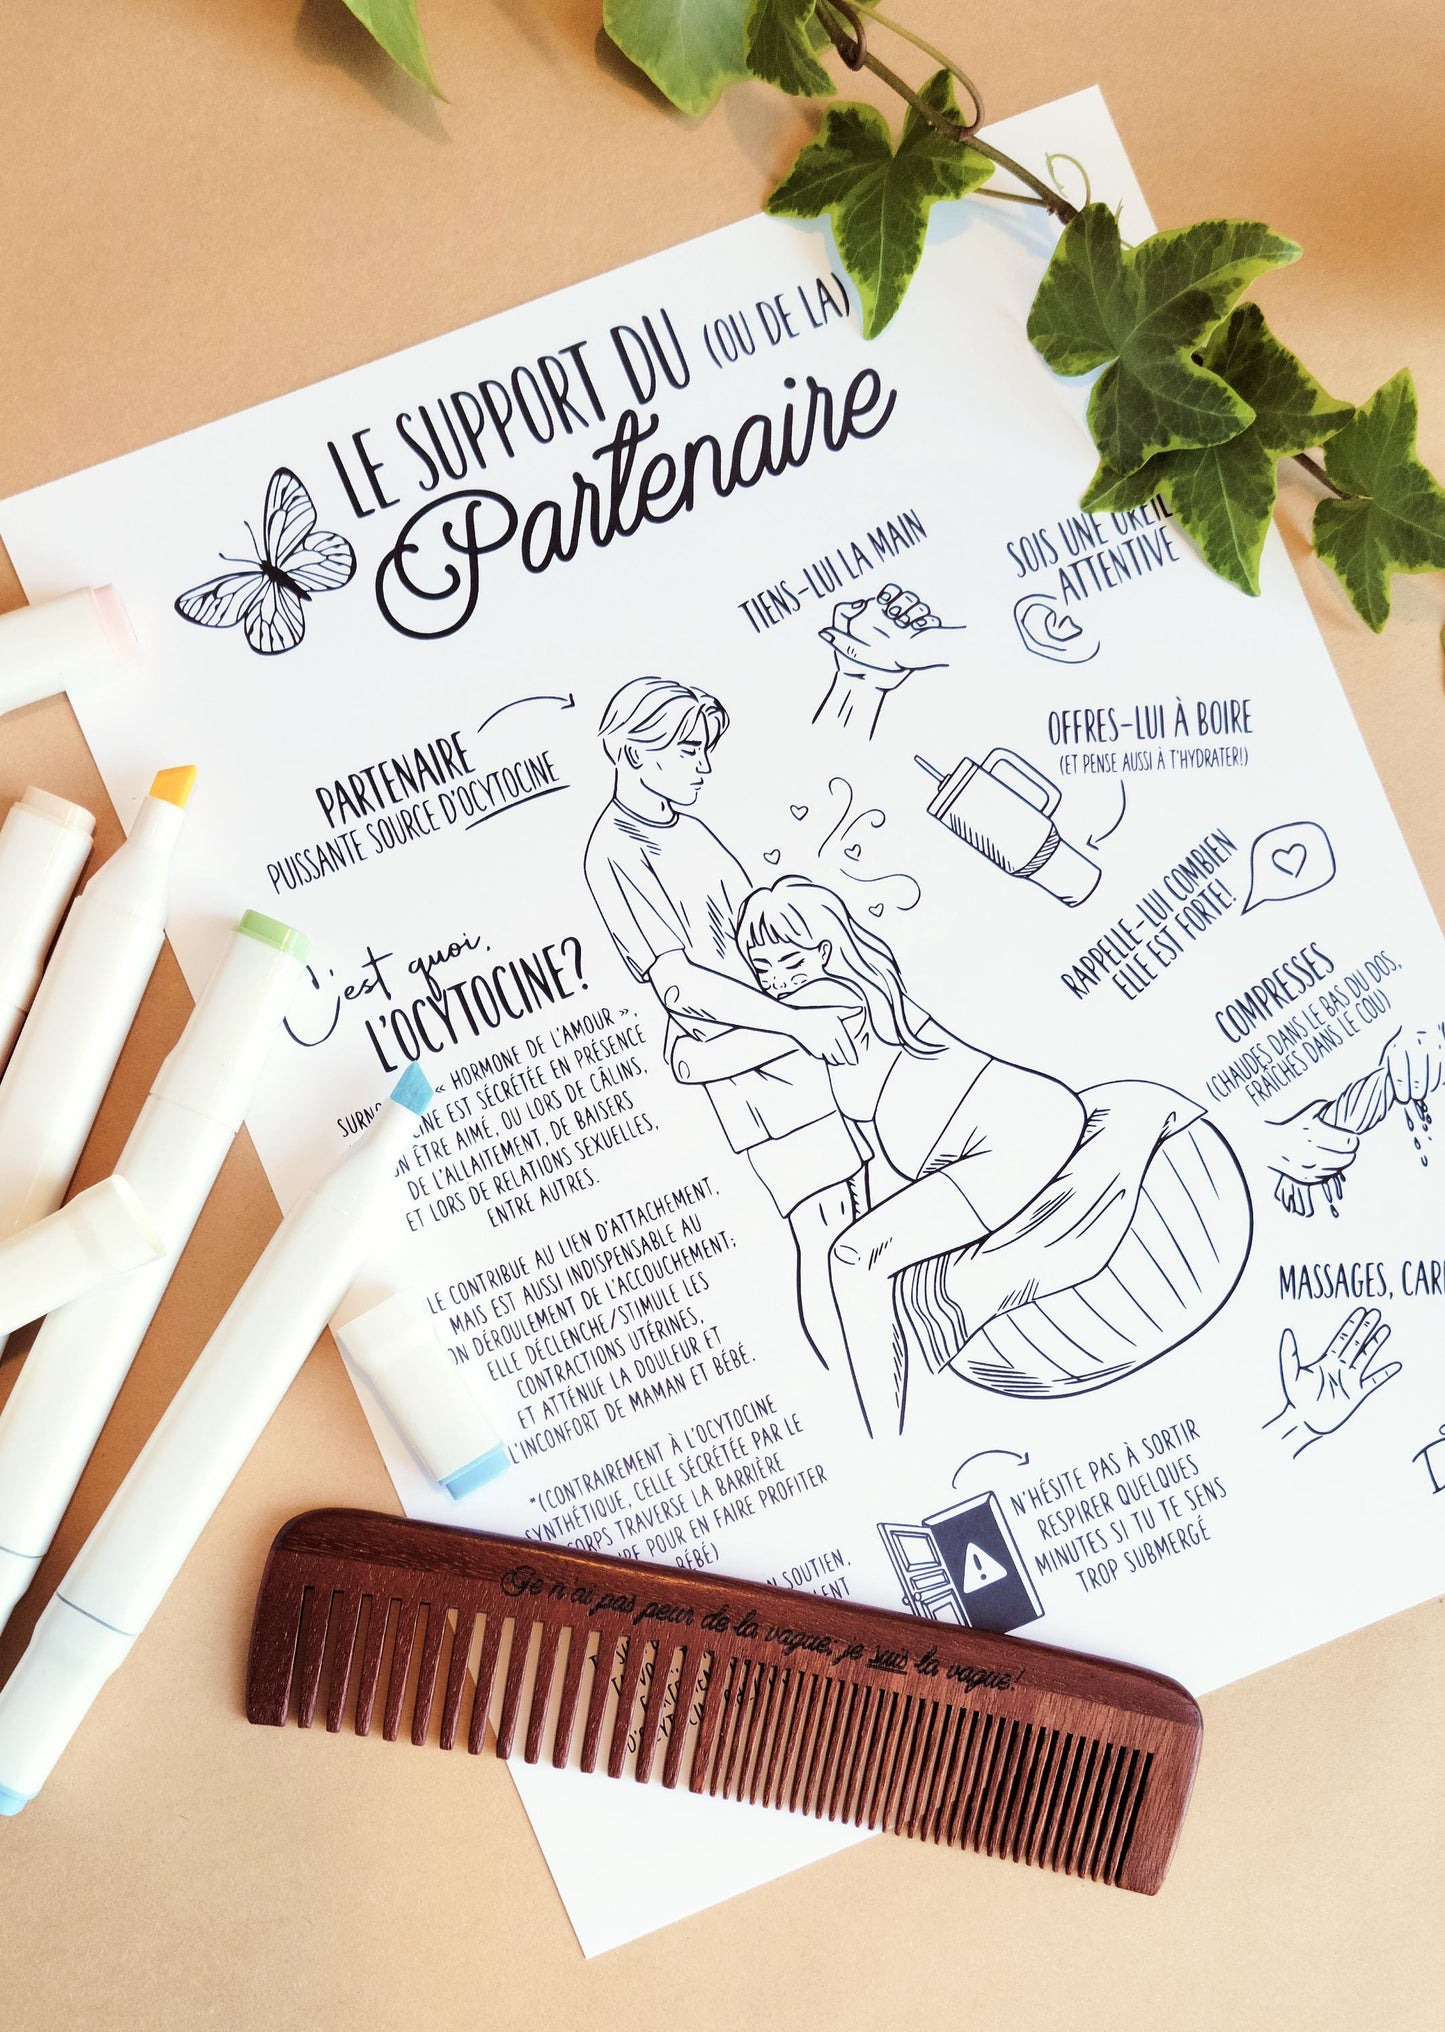 LE SUPPORT DU (OU DE LA)
Partenaire
TIENS-LUI LA MAIN
SOIS UNE OREIL
ATTENTIVE
OFFRES-LUI À BOIRE
(ET PENSE AUSSI À T'HYDRATER!)
PARTENAIRE
PUISSANTE SOURCE D'OCYTOCINE
RAPPELLE-LUI COMBIEN
ELLE EST FORTE!
COMPRESSES
(CHAUDES DANS LE BAS DU DOS,
FRAÎCHES DANS LE COU)
C'est quoi,
L'OCYTOCINE?
« HORMONE DE L'AMOUR »,
EST SÉCRÉTÉE EN PRÉSENCE
ÊTRE AIMÉ, OU LORS DE CÂLINS,
DE L'ALLAITEMENT, DE BAISERS
ET LORS DE RELATIONS SEXUELLES,
ENTRE AUTRES.
LE CONTRIBUE AU LIEN D'ATTACHEMENT,
MAIS EST AUSSI INDISPENSABLE AU
ON DÉROULEMENT DE L'ACCOUCHEMENT;
ELLE DÉCLENCHE/STIMULE LES
CONTRACTIONS UTÉRINES,
ET ATTÉNUE LA DOULEUR ET
L'INCONFORT DE MAMAN ET BÉBÉ.
*(CONTRAIREMENT À L'OCYTOCINE
SYNTHÉTIQUE, CELLE SÉCRÉTÉE PAR LE
CORPS TRAVERSE LA BARRIÈRE
POUR EN FAIRE PROFITER
BÉBÉ)
SOUTIEN,
MASSAGES, CAR
N'HÉSITE PAS À SORTIR
RESPIRER QUELQUES
MINUTES SI TU TE SENS
TROP SUBMERGÉ
Je n'ai pas peur de la vague; je suis la vague!